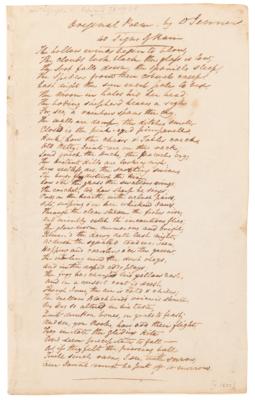 Original Poem - by D Jenner
40 Signs of Rain
The hollow winds begin to blow,
The clouds look black, the glass is low,
The soot falls down, the spaniels sleep,
The spiders from their cobwebs creep
Last night the sun went pale to bed
The moon in halos hid her head
The boding shepherd heaves a sigh
For see, a rainbow spans the sky,
The walls are damp, the ditches smell,
Closed is the pink-eyed pimpernel
Hark how the chairs & tables crack
Old Betty's are on the rack,
Loud quack the ducks, the peacocks cry;
The distant hills are looking nigh
How restless are the swine
Low o'er the grass the swallow wings
The cricket too, how sharp he sings
Puss on the hearth, with velvet paws,
Sits
Through the clear stream the fishes rise,
And nimbly catch the incautious flies;
The glow-worms numerous and bright,
Illumed the dewy dell last night
At dusk the squalid toad was seen
Hopping and crawling o'er the green
The whirling wind the dust obeys,
And in the rapid eddy plays
The frog has changed his yellow vest,
And in a russet coat is dressed
Though June, the air is cold & still;
The mellow blackbird's voice is shrill
My dog so altered in his taste
Quits mutton bones, on grass to feast;
And see, yon Rooks, how odd their flight
They imitate the gliding kite,
Or seem precipitate to fall
As if they felt the piercing ball
'Twill surely rain, I see with sorrow
Our Jaunt must be put off to morrow